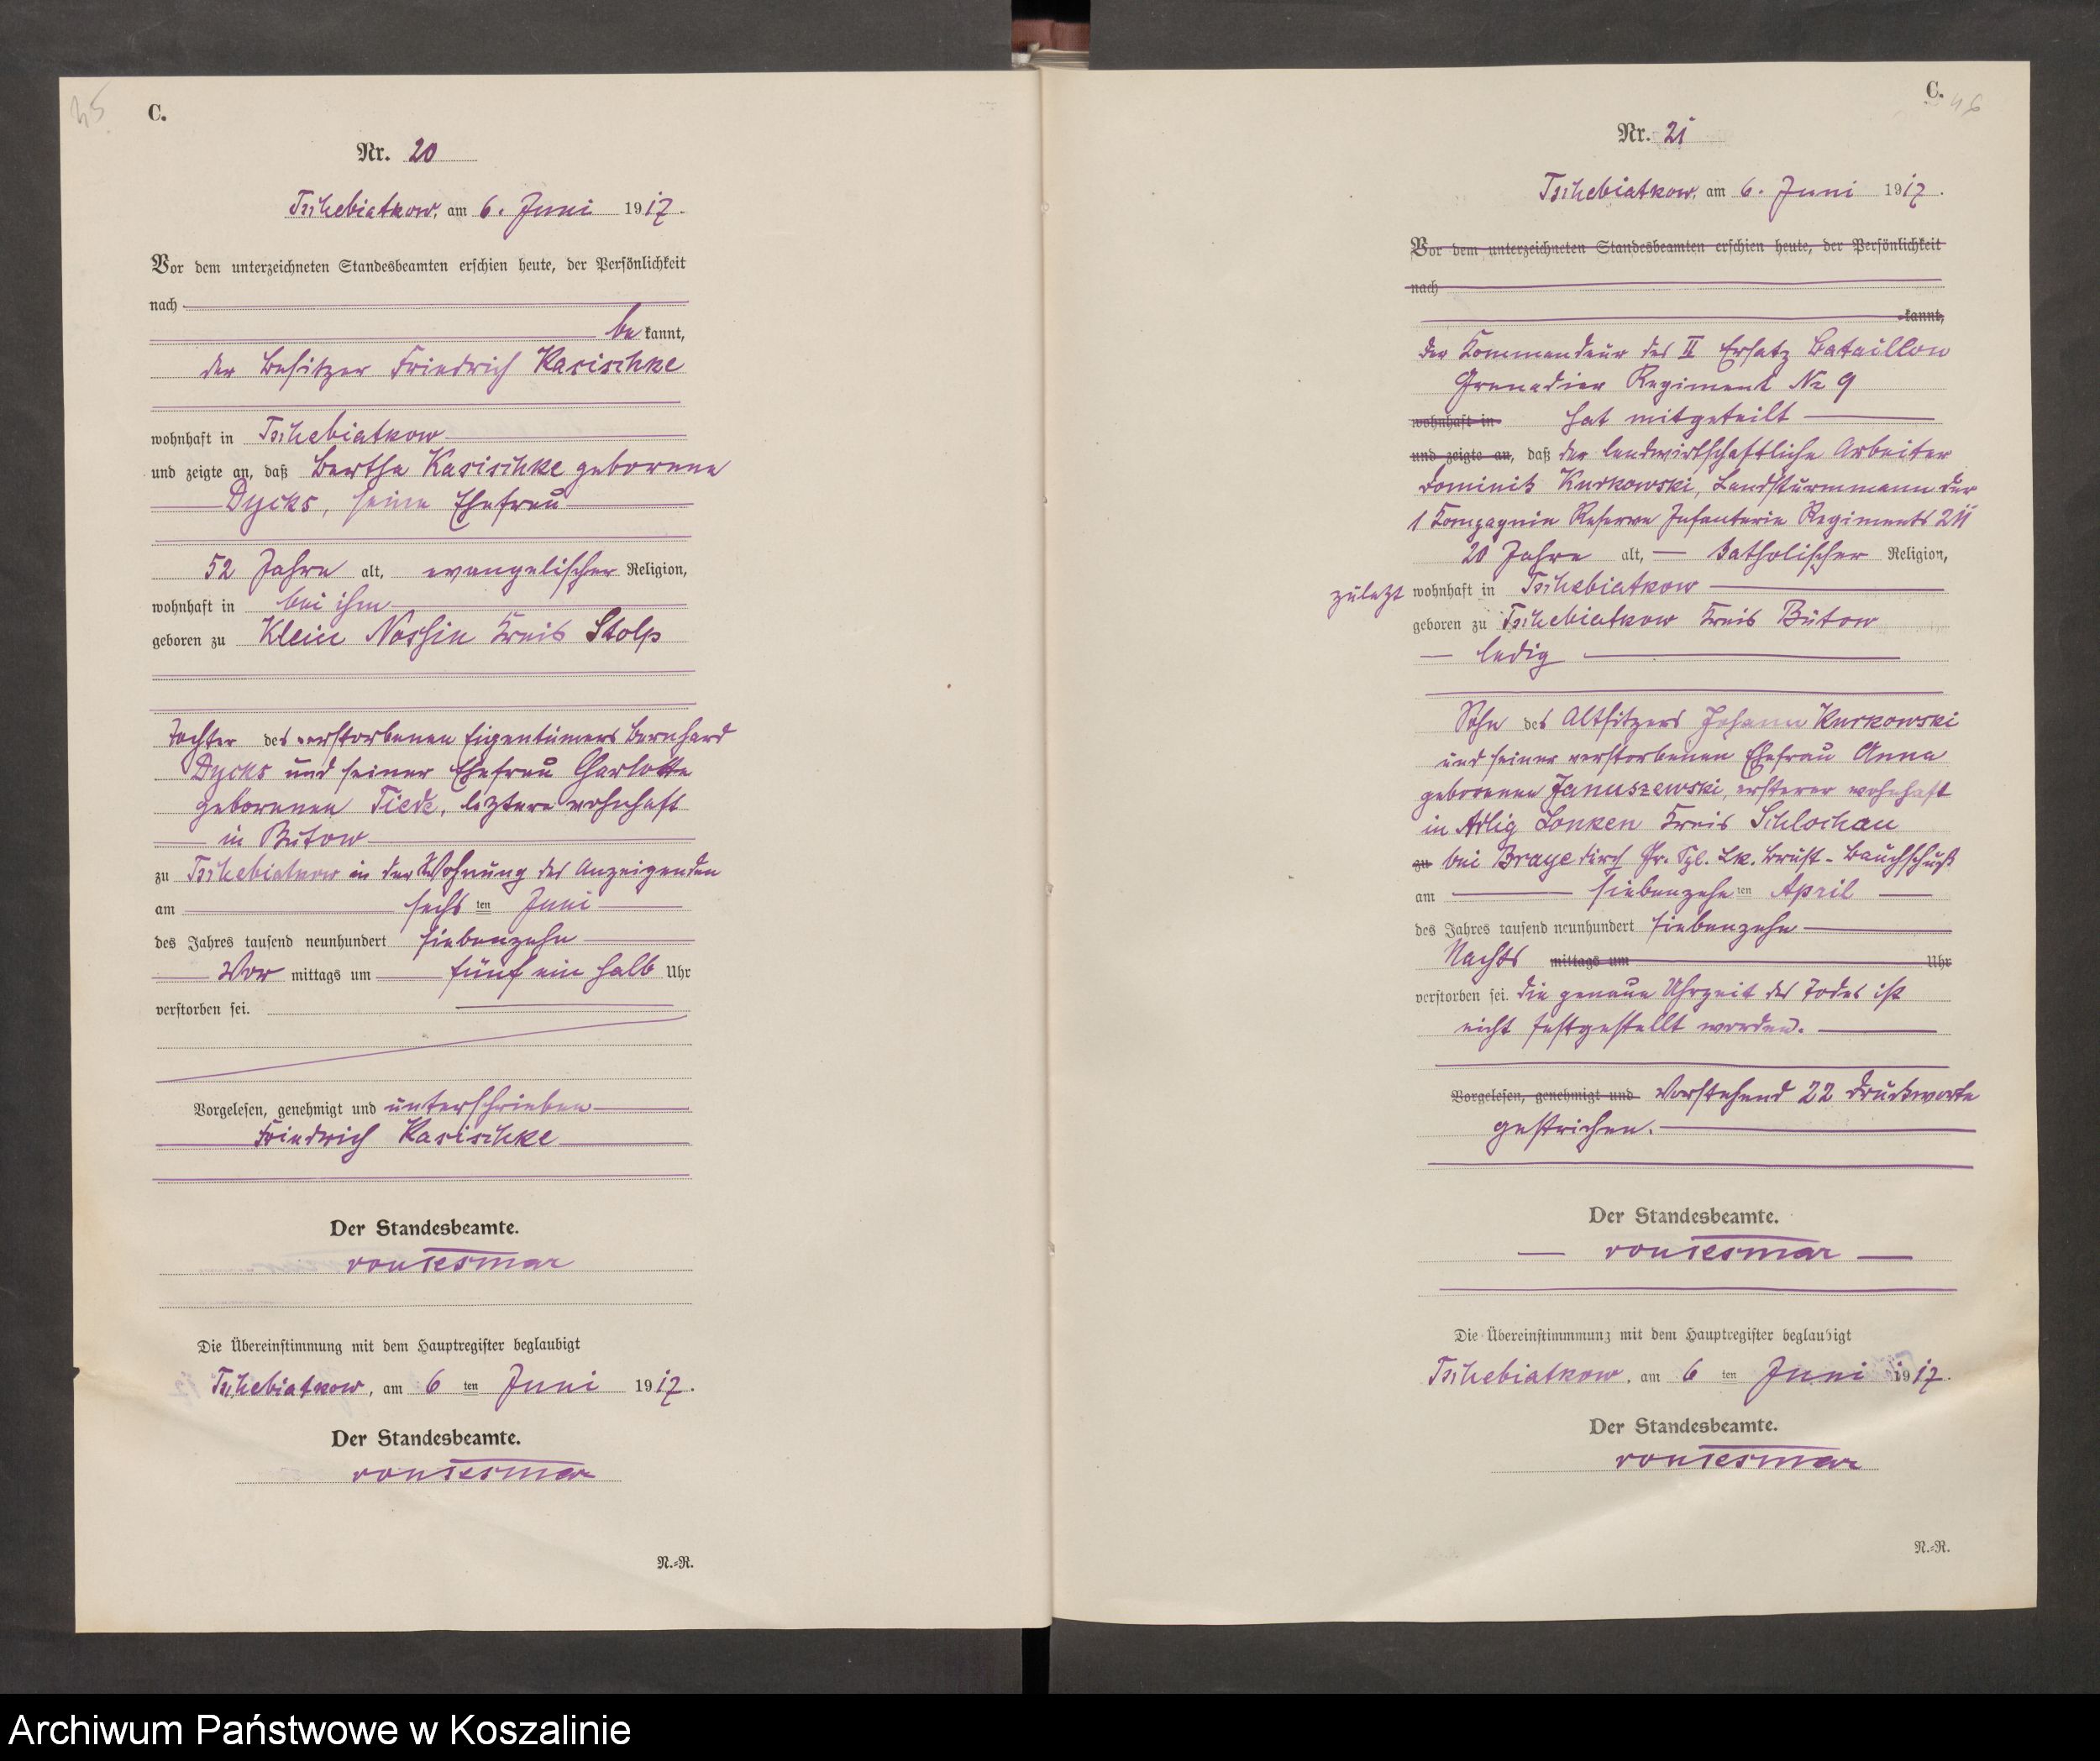 45
C.
Nr. 20
Tschebiatkow, am 6. Juni 1917.
Vor dem unterzeichneten Standesbeamten erschien heute, der Persönlichkeit
nach
be kannt,
der Besitzer Friedrich Kasischke
wohnhaft in Tschebiatkow
und zeigte an, daß Bertha Kasischke geborene
Dycks, seine Ehefrau
52 Jahre alt, evangelischer Religion,
wohnhaft in bei ihm
geboren zu Klein Nossin Kreis Stolp
Tochter des verstorbenen Eigentümers Bernhard
Dycks und seiner Ehefrau Charlotte
geborenen Tiede, letztere wohnhaft
in Bütow
zu Tschebiatkow in der Wohnung des Anzeigenden
am sechs ten Juni
des Jahres tausend neunhundert siebenzehn
Vor mittags um fünf ein halb Uhr
verstorben sei.
Vorgelesen, genehmigt und unterschrieben
Friedrich Kasischke
Der Standesbeamte.
von Tesmar
Die Übereinstimmung mit dem Hauptregister beglaubigt
Tschebiatkow, am 6 ten Juni 1917.
Der Standesbeamte.
von Tesmar
N.-R.
C.
46
Nr. 21
Tschebiatkow, am 6. Juni 1917.
Vor dem unterzeichneten Standesbeamten erschien heute, der Persönlichkeit
nach
kannt,
Der Kommandeur des II Ersatz Bataillon
Grenadier Regiment No 9
wohnhaft in hat mitgeteilt
und zeigte an, daß der landwirtschaftliche Arbeiter
Dominik Kurkowski, Landsturmmann der
1 Kompagnie Reserve Infanterie Regiments 211
20 Jahre alt, katholischer Religion,
zuletzt wohnhaft in Tschebiatkow
geboren zu Tschebiatkow Kreis Bütow
ledig
Sohn des Altsitzers Johann Kurkowski
und seiner verstorbenen Ehefrau Anna
geborenen Januszewski, ersterer wohnhaft
in Adlig Lonken Kreis Schlochau
zu bei Braye durch Gr. Spl. Lk. Brust-Bauchschuß
am siebenzehn ten April
des Jahres tausend neunhundert siebenzehn
Nachts mittags um Uhr
verstorben sei. Die genaue Uhrzeit des Todes ist
nicht festgestellt worden.
Vorgelesen, genehmigt und Vorstehend 22 Druckworte
gestrichen.
Der Standesbeamte.
von Tesmar
Die Übereinstimmmung mit dem Hauptregister beglaubigt
Tschebiatkow, am 6 ten Juni 1917.
Der Standesbeamte.
von Tesmar
N.-R.
Archiwum Państwowe w Koszalinie